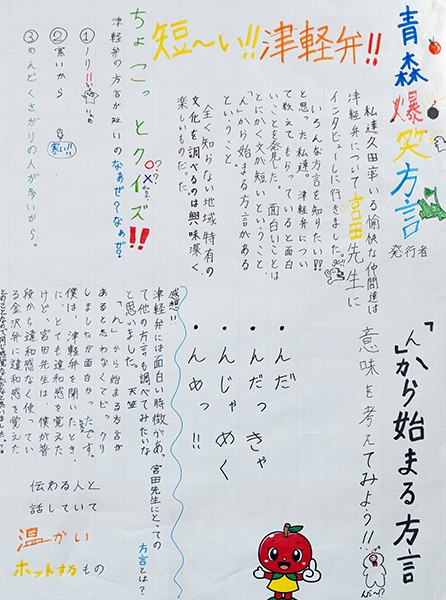 青森爆笑方言
発行者
私達久田率いる愉快な仲間達は
津軽弁について宮田先生に
インタビューに行きました。
いろんな方言を知りたい!!
と思った私達。津軽弁につい
て教えてもらっていると面白
いことを発見した。面白いことは
とにかく文が短いということ
「ん」から始まる方言がある
ということ。
全く知らない地域特有の
文化を調べるのは興味深く
楽しいものだった。
短〜い!!津軽弁!!
ちょこっとクイズ!!
津軽弁の方言が短いのなぁぜ?なぁぜ?
①ノリ!!
②寒いから
寒い!!
③めんどくさがりの人が多いから。
「ん」から始まる方言
意味を考えてみよう!!
・んだ
・んだっきゃ
・んじゃめく
・んめっ!!
感想!!
津軽弁には面白い特徴があ
て他の方言も調べてみたいな
と思いました。天笠
「ん」から始まる方言が
あると思わなくてビックリ
しましたが面白かったです。
僕は、津軽弁を聞いたとき、
にとても違和感を覚えた
けど、宮田先生は、僕が普
段から違和感なく使ってい
る金沢弁に違和感を覚えた
宮田先生にとっての
方言とは?
伝わる人と
話していて
温かい
ホットするもの